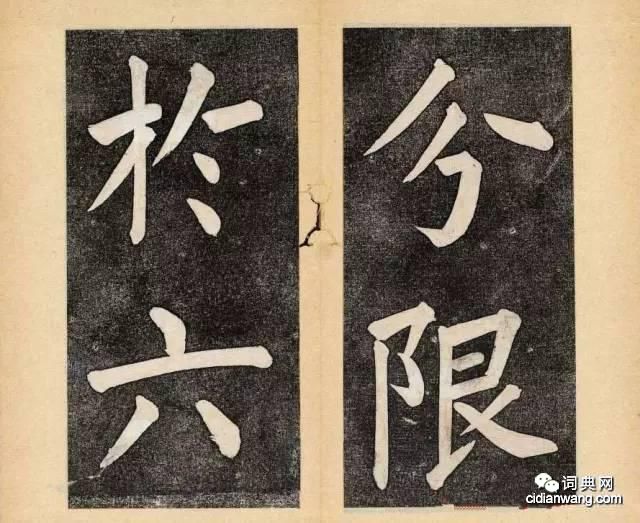 分限
於六
词典网
cidianwang.com